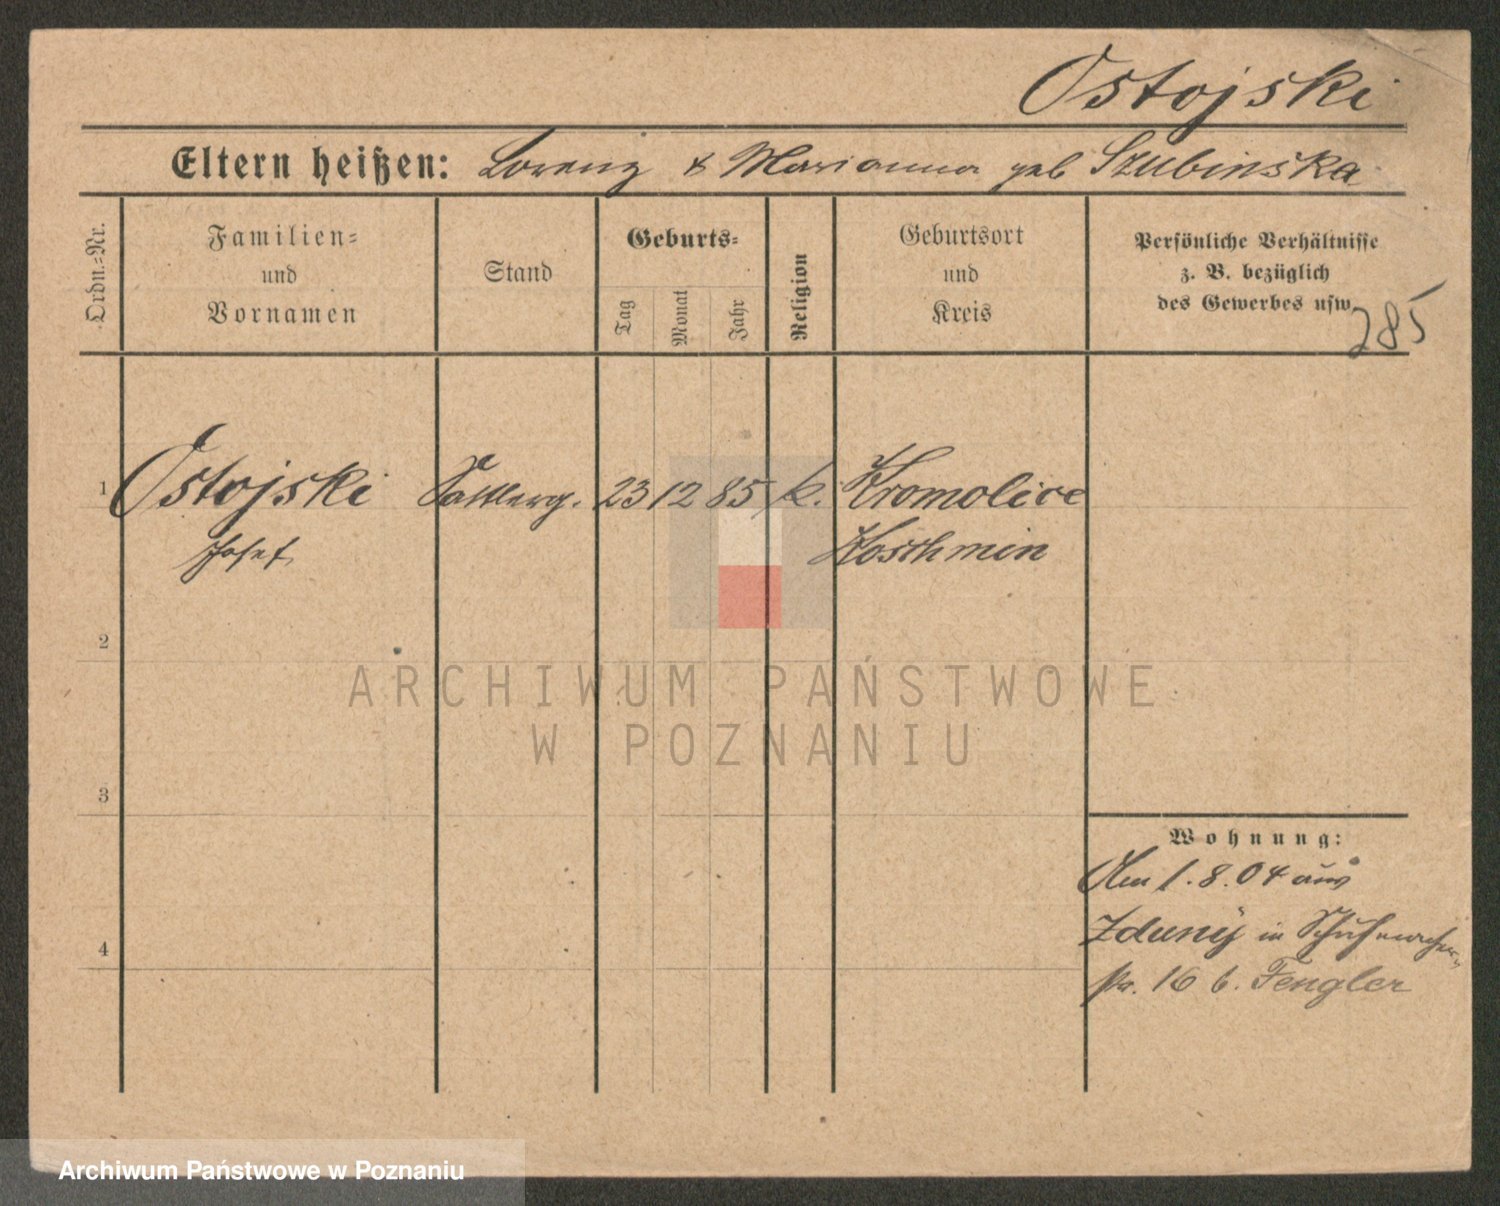 Ostojski
Eltern heißen: Lorenz & Marianna geb Szubinska
Ordn.-Nr.
Familien-
und
Vornamen
Stand
Geburts-
Tag
Monat
Jahr
Religion
Geburtsort
und
Kreis
Persönliche Verhältnisse
z. B. bezüglich
des Gewerbes usw.
285
1 Ostojski Sattlerg. 23 12 85 k. Kromolice
Josef Koschmin
2
ARCHIWUM PAŃSTWOWE
W POZNANIU
3
Wohnung:
Am 1.8.04 aus
4 Zduny in Schuhmacher-
str. 16 b. Fengler
Archiwum Państwowe w Poznaniu